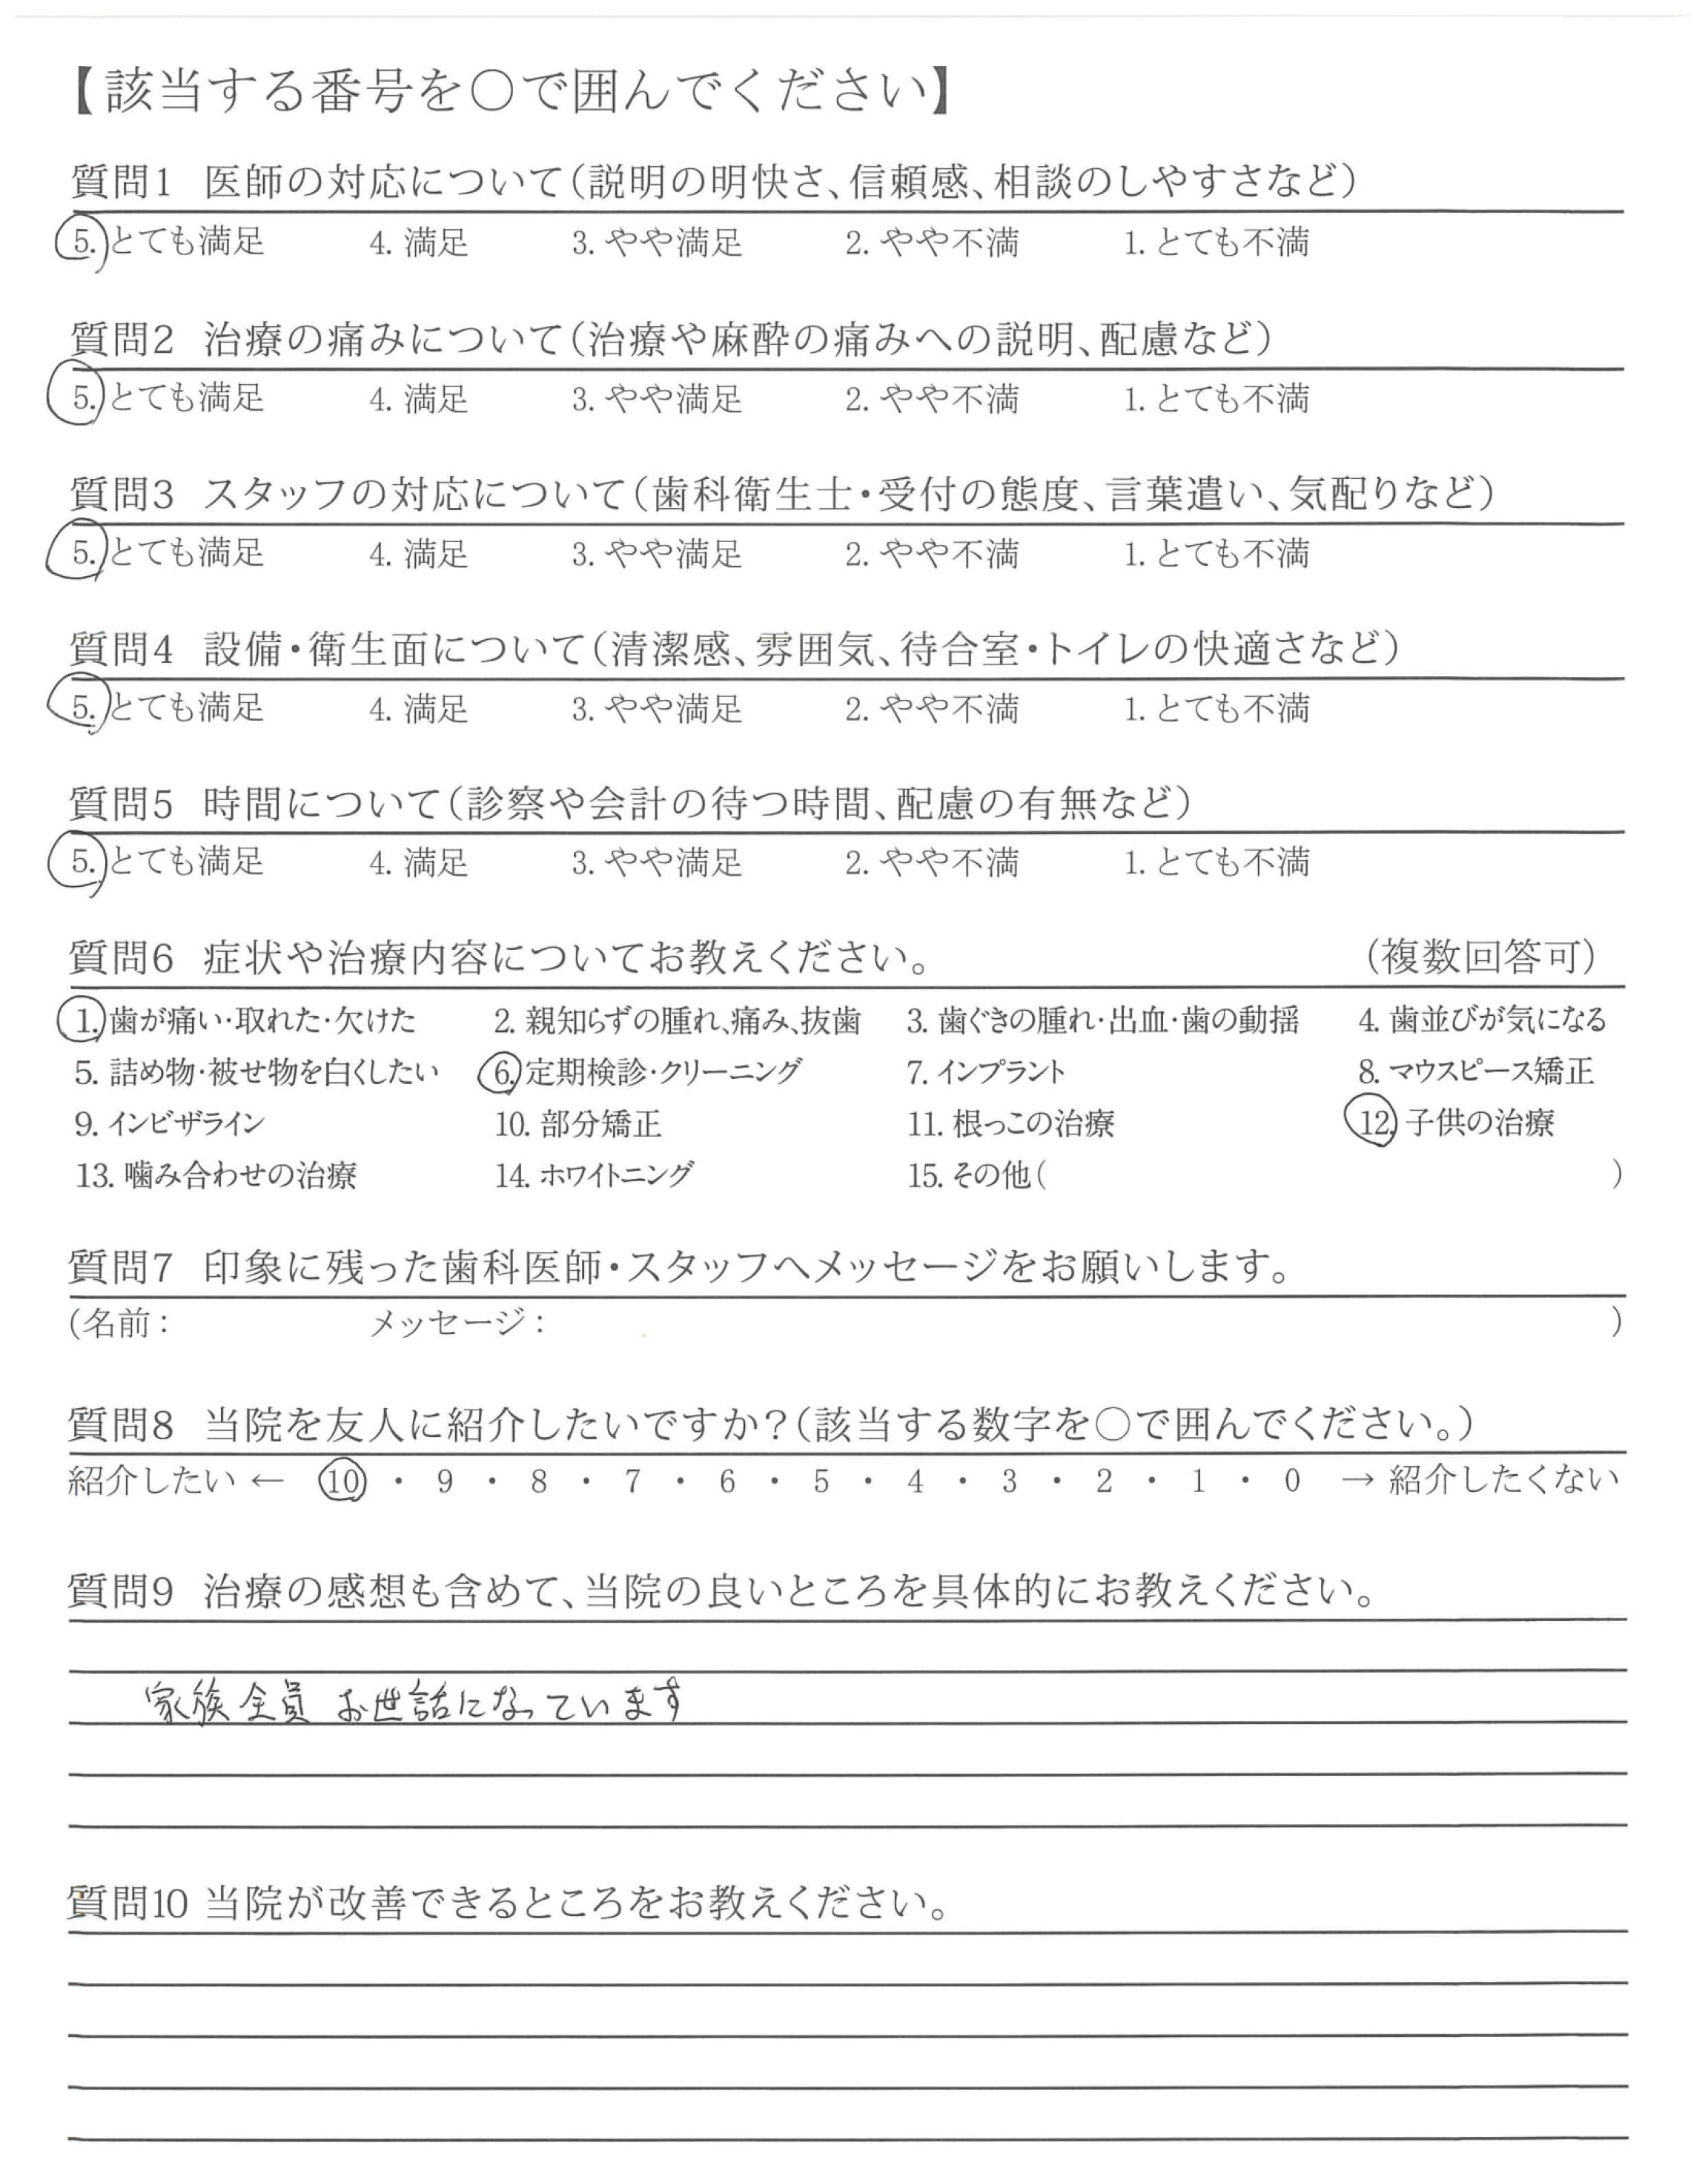 【該当する番号を○で囲んでください】
質問1 医師の対応について(説明の明快さ、信頼感、相談のしやすさなど)
5. とても満足 4. 満足 3. やや満足 2. やや不満 1. とても不満
質問2 治療の痛みについて(治療や麻酔の痛みへの説明、配慮など)
5. とても満足 4. 満足 3. やや満足 2. やや不満 1. とても不満
質問3 スタッフの対応について(歯科衛生士・受付の態度、言葉遣い、気配りなど)
5. とても満足 4. 満足 3. やや満足 2. やや不満 1. とても不満
質問4 設備・衛生面について(清潔感、雰囲気、待合室・トイレの快適さなど)
5. とても満足 4. 満足 3. やや満足 2. やや不満 1. とても不満
質問5 時間について(診察や会計の待つ時間、配慮の有無など)
5. とても満足 4. 満足 3. やや満足 2. やや不満 1. とても不満
質問6 症状や治療内容についてお教えください。 (複数回答可)
1. 歯が痛い・取れた・欠けた 2. 親知らずの腫れ、痛み、抜歯 3. 歯ぐきの腫れ・出血・歯の動揺 4. 歯並びが気になる
5. 詰め物・被せ物を白くしたい 6. 定期検診・クリーニング 7. インプラント 8. マウスピース矯正
9. インビザライン 10. 部分矯正 11. 根っこの治療 12. 子供の治療
13. 噛み合わせの治療 14. ホワイトニング 15. その他( )
質問7 印象に残った歯科医師・スタッフへメッセージをお願いします。
(名前: メッセージ: )
質問8 当院を友人に紹介したいですか?(該当する数字を○で囲んでください。)
紹介したい ← 10 ・ 9 ・ 8 ・ 7 ・ 6 ・ 5 ・ 4 ・ 3 ・ 2 ・ 1 ・ 0 → 紹介したくない
質問9 治療の感想も含めて、当院の良いところを具体的にお教えください。
家族全員 お世話になっています
質問10 当院が改善できるところをお教えください。